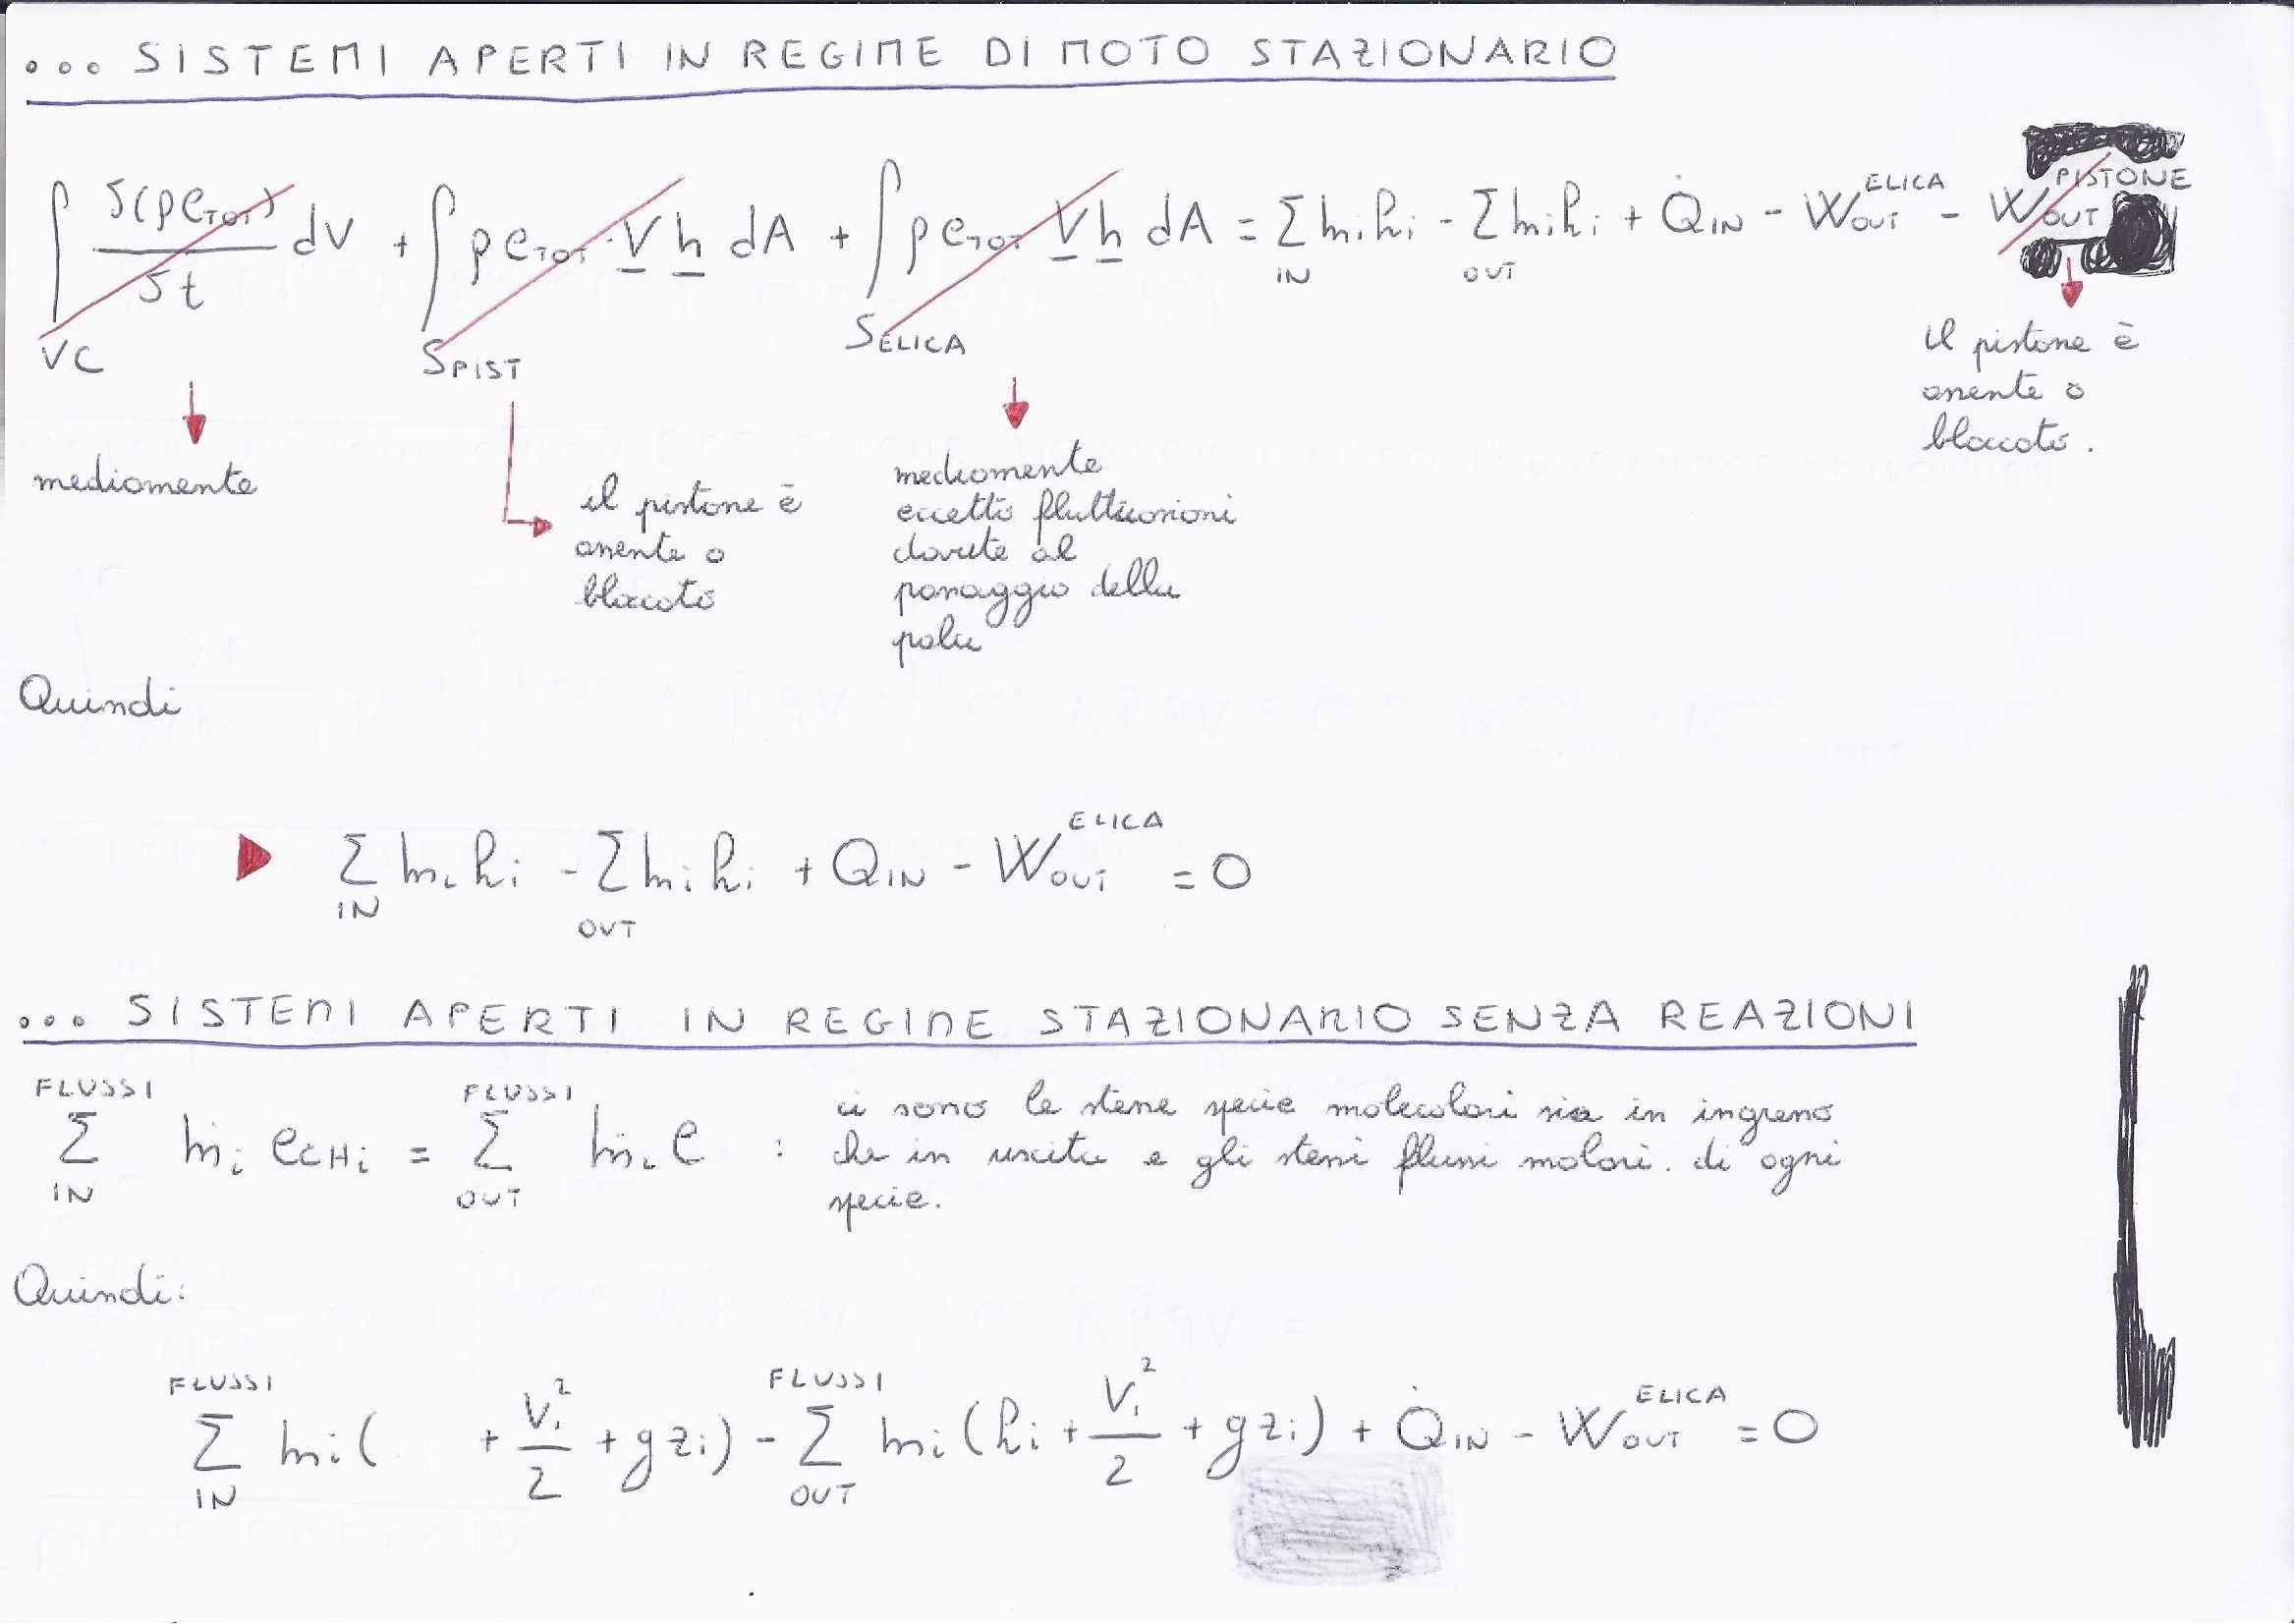 ... SISTEMI APERTI IN REGIME DI MOTO STAZIONARIO
∫_VC δ(ρe_TOT)/δt dV + ∫_S_PIST ρe_TOT · V n dA + ∫_S_ELICA ρe_TOT V n dA = Σ_IN ṁi hi - Σ_OUT ṁi hi + Q̇_IN - W_OUT^ELICA - W_OUT^PISTONE
il pistone è
assente o
bloccato.
mediamente
il pistone è
assente o
bloccato
mediamente
eccetto fluttuazioni
dovute al
passaggio della
pala
Quindi
Σ_IN ṁi hi - Σ_OUT ṁi hi + Q_IN - W_OUT^ELICA = 0
... SISTEMI APERTI IN REGIME STAZIONARIO SENZA REAZIONI
Σ_IN^FLUSSI ṁi e_CHi = Σ_OUT^FLUSSI ṁi e : ci sono le stesse specie molecolari sia in ingresso
che in uscita e gli stessi flussi molari. di ogni
specie.
Quindi:
Σ_IN^FLUSSI ṁi ( + Vi²/2 + gzi) - Σ_OUT^FLUSSI ṁi (hi + Vi²/2 + gzi) + Q̇_IN - W_OUT^ELICA = 0